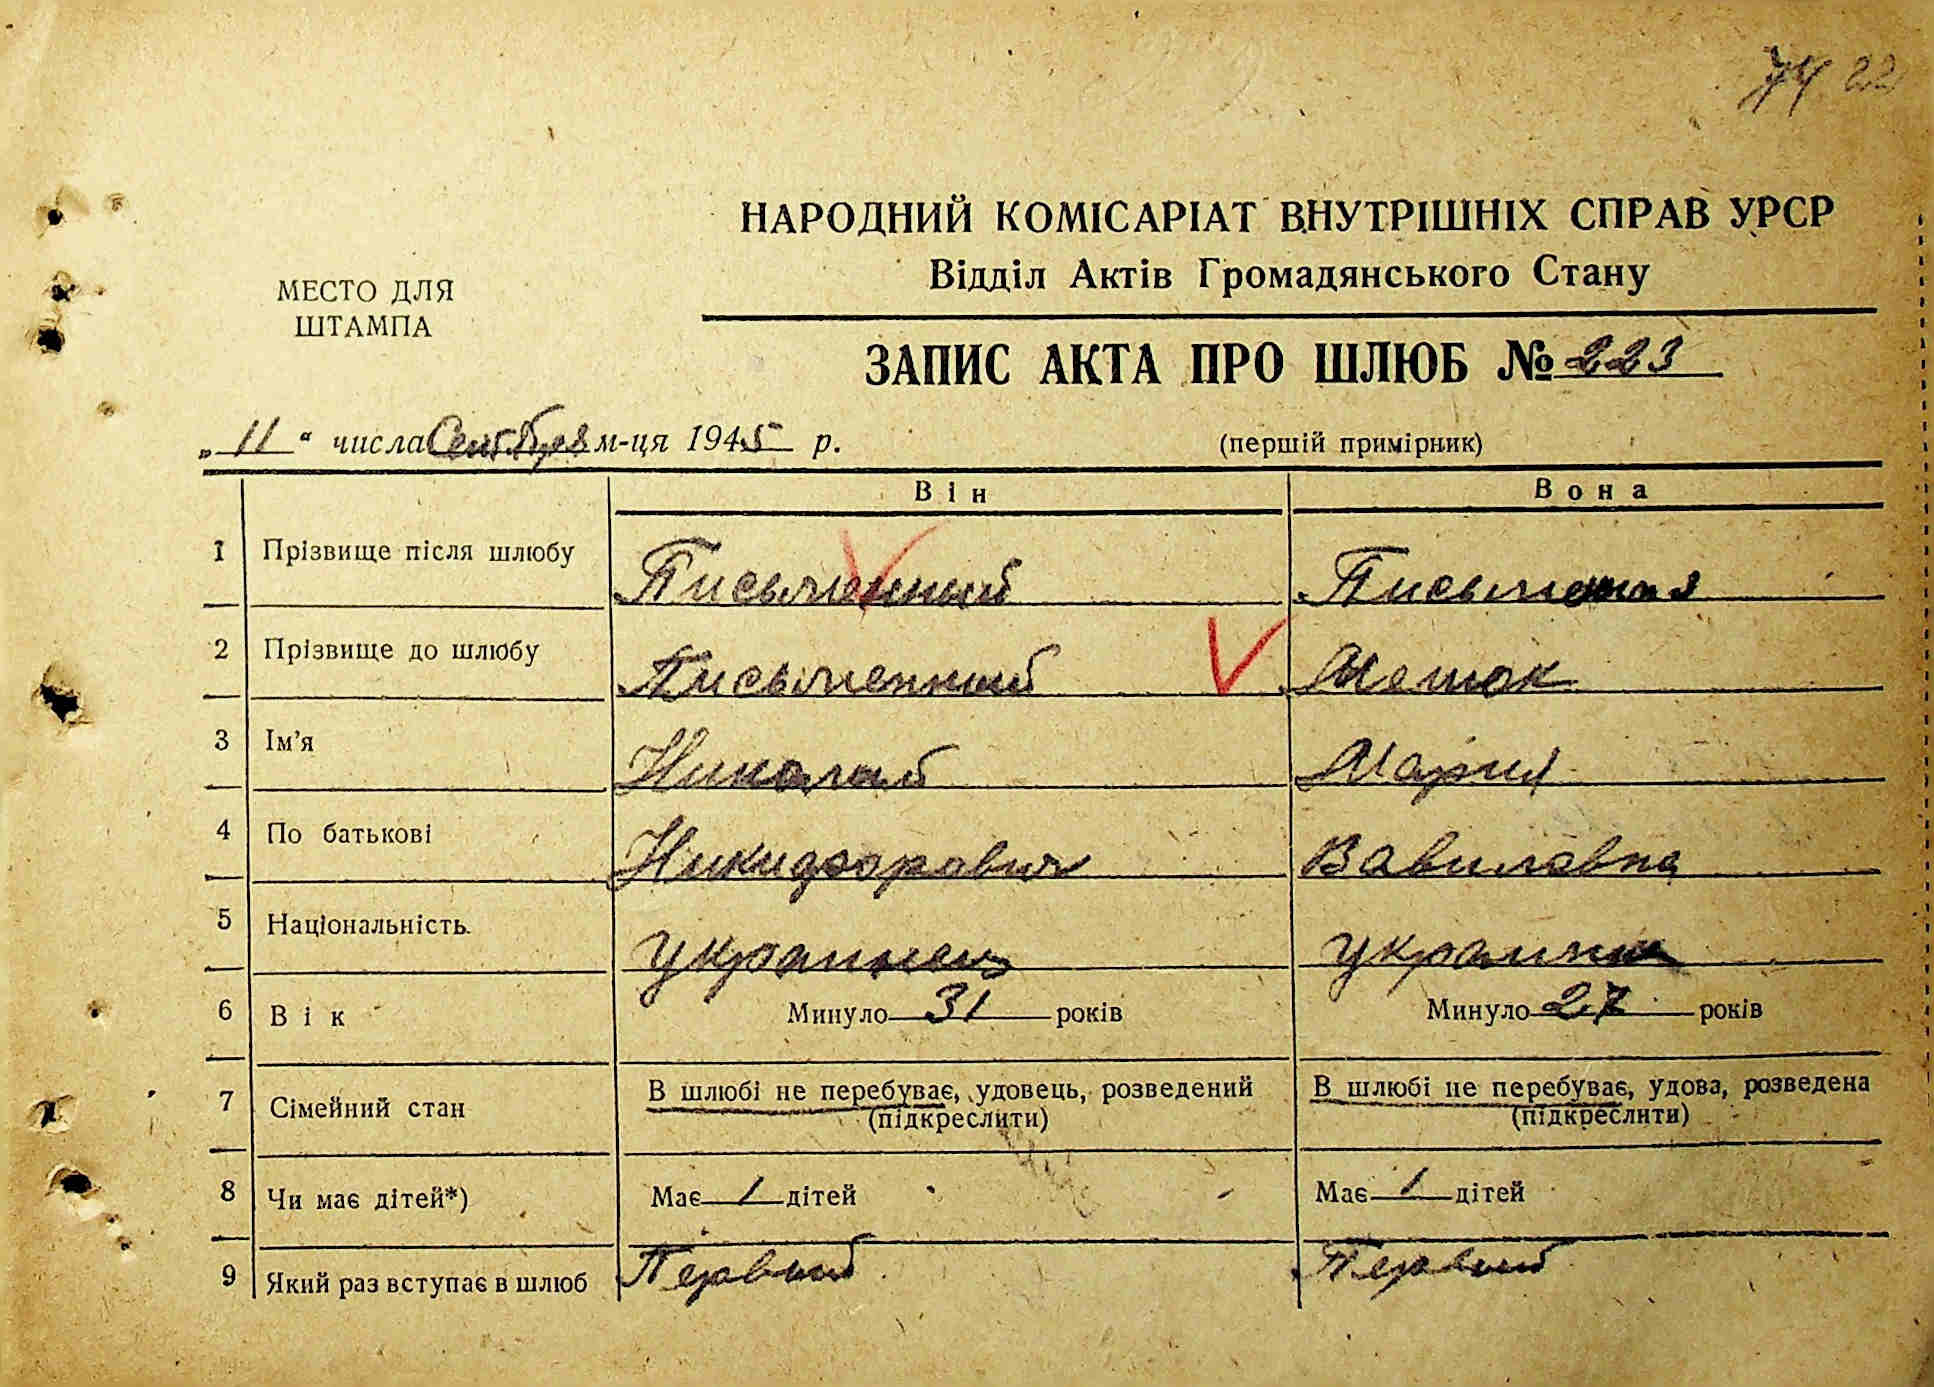 22
НАРОДНИЙ КОМІСАРІАТ ВНУТРІШНІХ СПРАВ УРСР
Відділ Актів Громадянського Стану
МЕСТО ДЛЯ
ШТАМПА
ЗАПИС АКТА ПРО ШЛЮБ № 223
„11“ числа Сентября м-ця 1945 р.
(першій примірник)
Він Вона
1 Прізвище після шлюбу Письменный Письменная
2 Прізвище до шлюбу Письменный Мешок
3 Ім'я Николай Мария
4 По батькові Никифорович Вавиловна
5 Національність. украинец украинка
6 Вік Минуло 31 років Минуло 27 років
7 Сімейний стан В шлюбі не перебуває, удовець, розведений В шлюбі не перебуває, удова, розведена
(підкреслити) (підкреслити)
8 Чи має дітей*) Має 1 дітей Має 1 дітей
9 Який раз вступає в шлюб Первый Первый